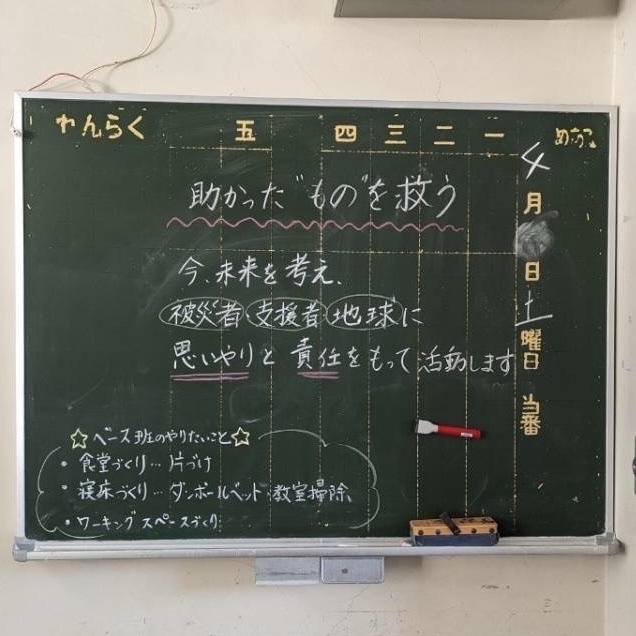 れんらく 五 四 三 二 一 めあて
4月 日 土曜日 当番
助かった"もの"を救う
今、未来を考え、
被災者・支援者・地球に
思いやりと責任をもって活動します
☆ベース班のやりたいこと☆
・食堂づくり…片づけ
・寝床づくり…ダンボールベット・教室掃除、
・ワーキングスペースづくり